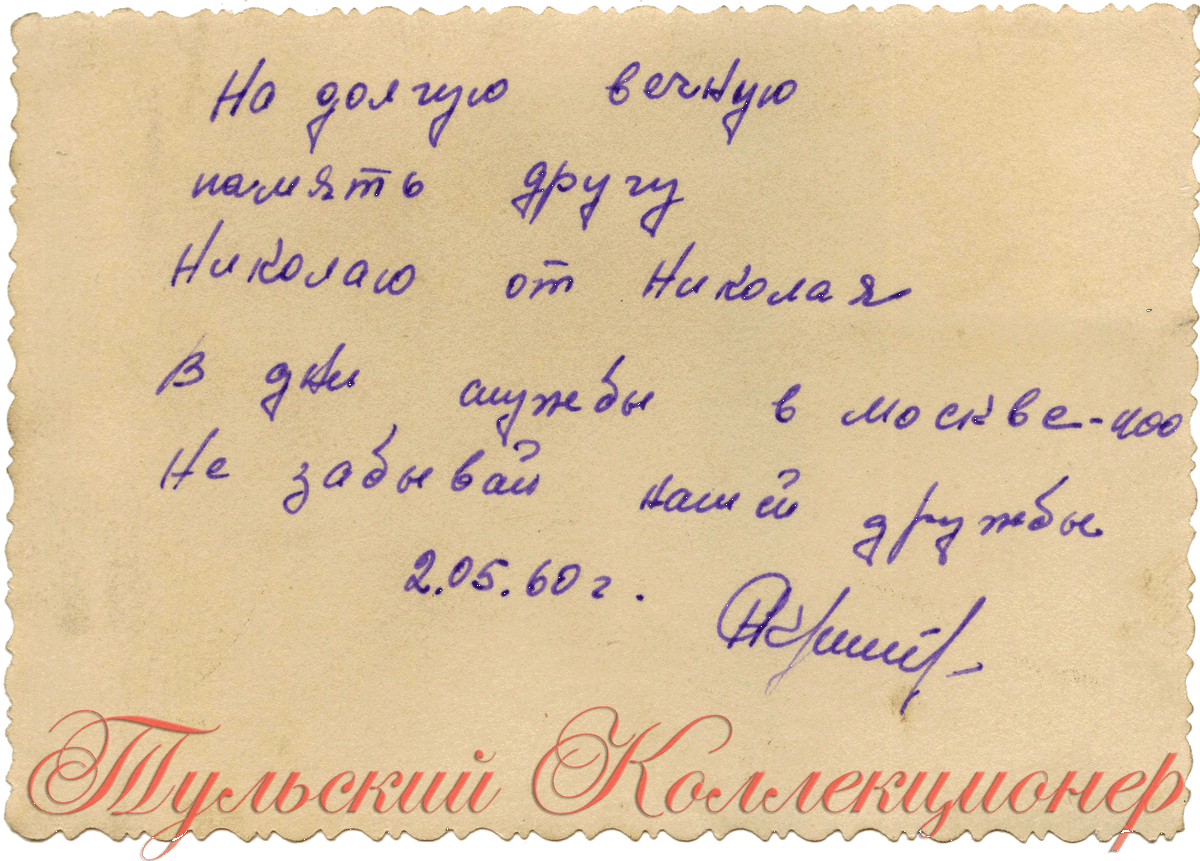 На долгую вечную
память другу
Николаю от Николая
В дни службы в Москве-400
Не забывай нашей дружбы
2.05.60 г.
Тульский Коллекционер